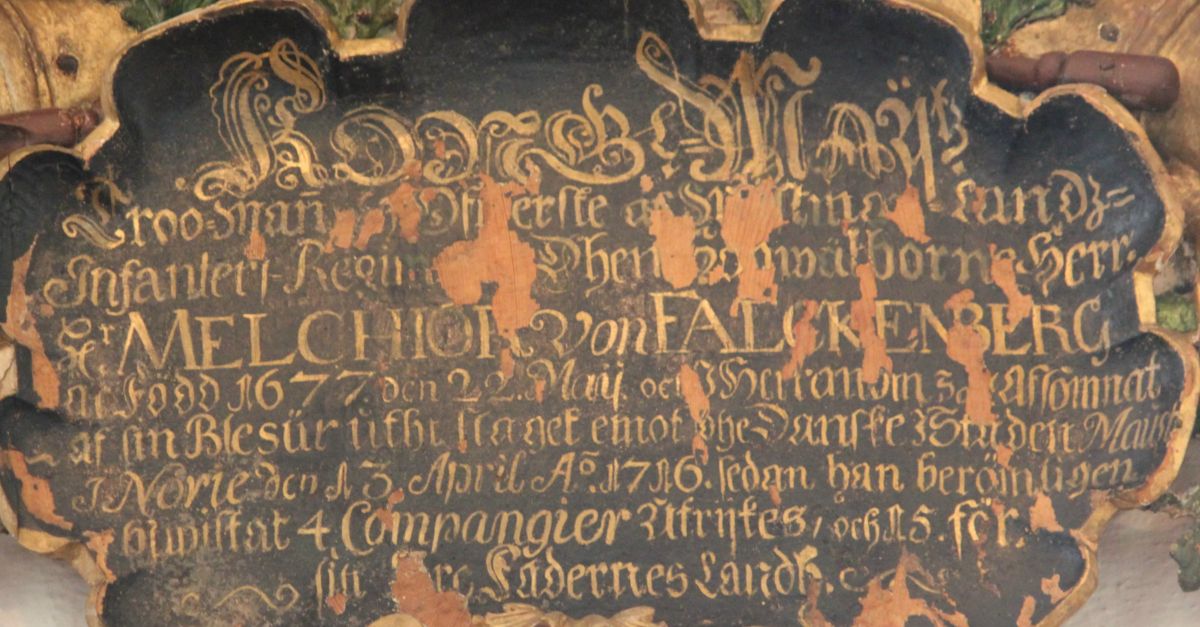 Kongl: Maÿtz
Troo Man Öfwerste af Landz=
Infanterj- Dhen Högwälborne Herr.
Hr MELCHIOR von FALCKENBERG
är Född 1677. den 22. Maij. och J Herranom afsomnat
af sin Blesür uthi slaget emot the Danske J Staden
J Norie den 23 April Aº. 1716. sedan han berömligen
biwistat 4 Compangier Utrijkes, och 15. för.
sitt Fädernes Landh.